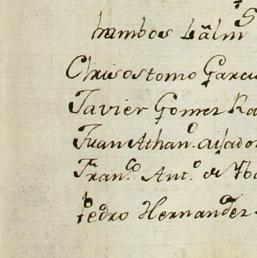 hambos
Chrisostomo Garci
Javier Gomez Ra
Juan Athanº aisador
Franᶜᵒ Antº de Yba
Pedro Hernandez